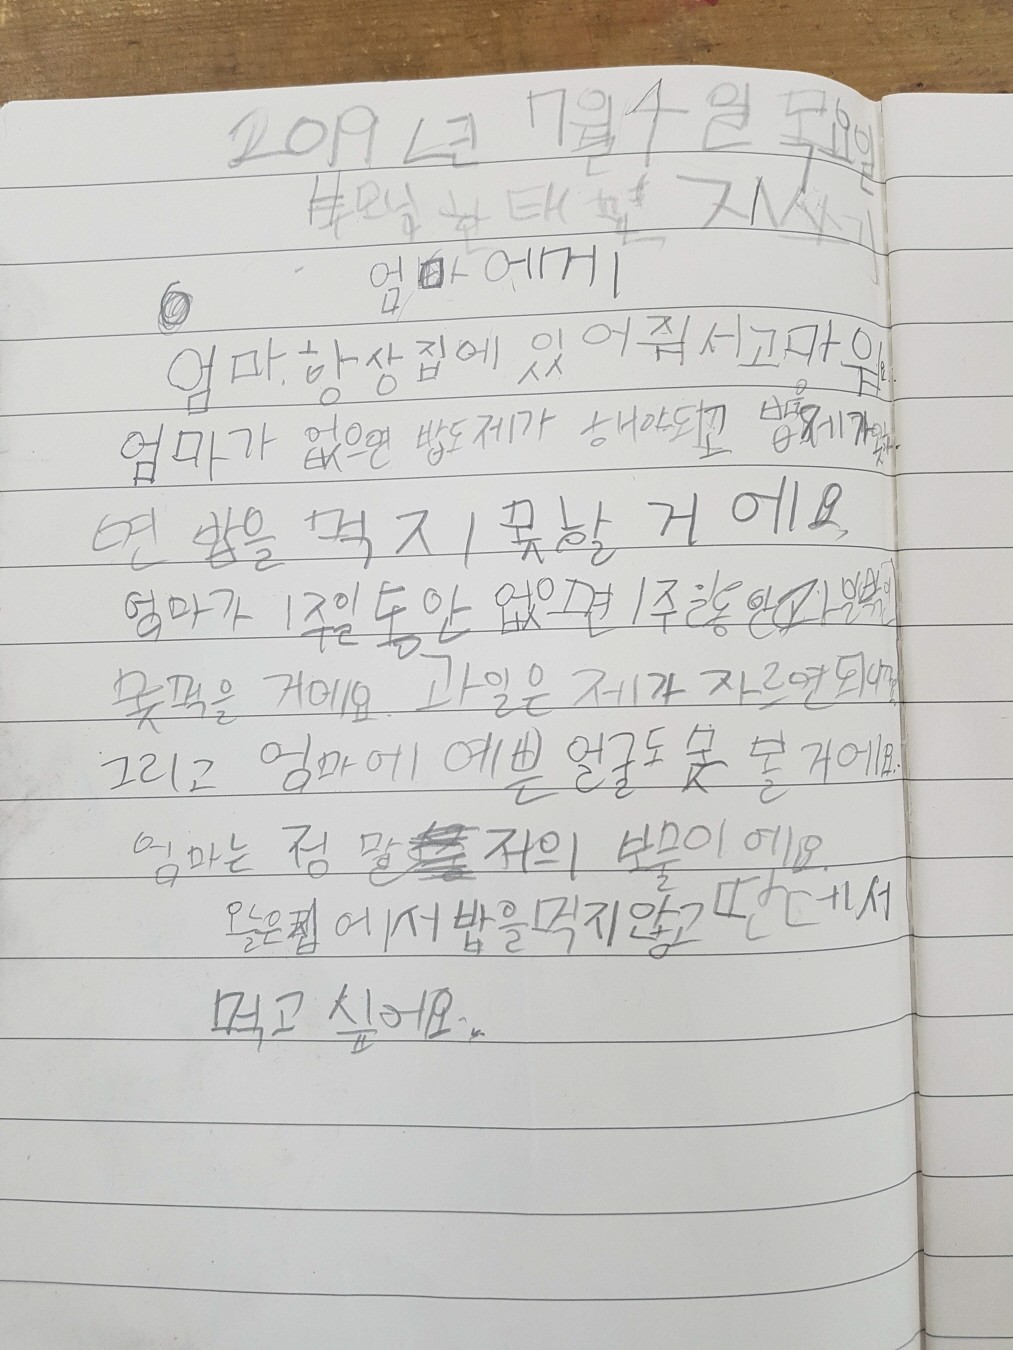 2019년 7월 4일 목요일
부모님한태 편지쓰기
엄마에게
엄마 항상 집에 있어줘서 고마워요.
엄마가 없으면 밥도 제가 해야되고 밥을 제가
면 밥을 먹지 못할 거에요
엄마가 1주일 동안 없으면 1주일동안
못먹을 거에요. 과일은 제가 자르면
그리고 엄마에 예쁜 얼굴도 못 볼 거에요.
엄마는 정말 저의 보물이에요.
오늘은 집에서 밥을먹지않고 딴데서
먹고 싶어요..